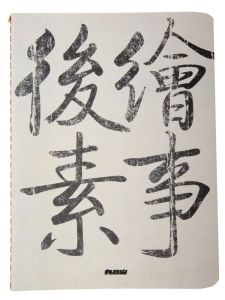 繪事
後素